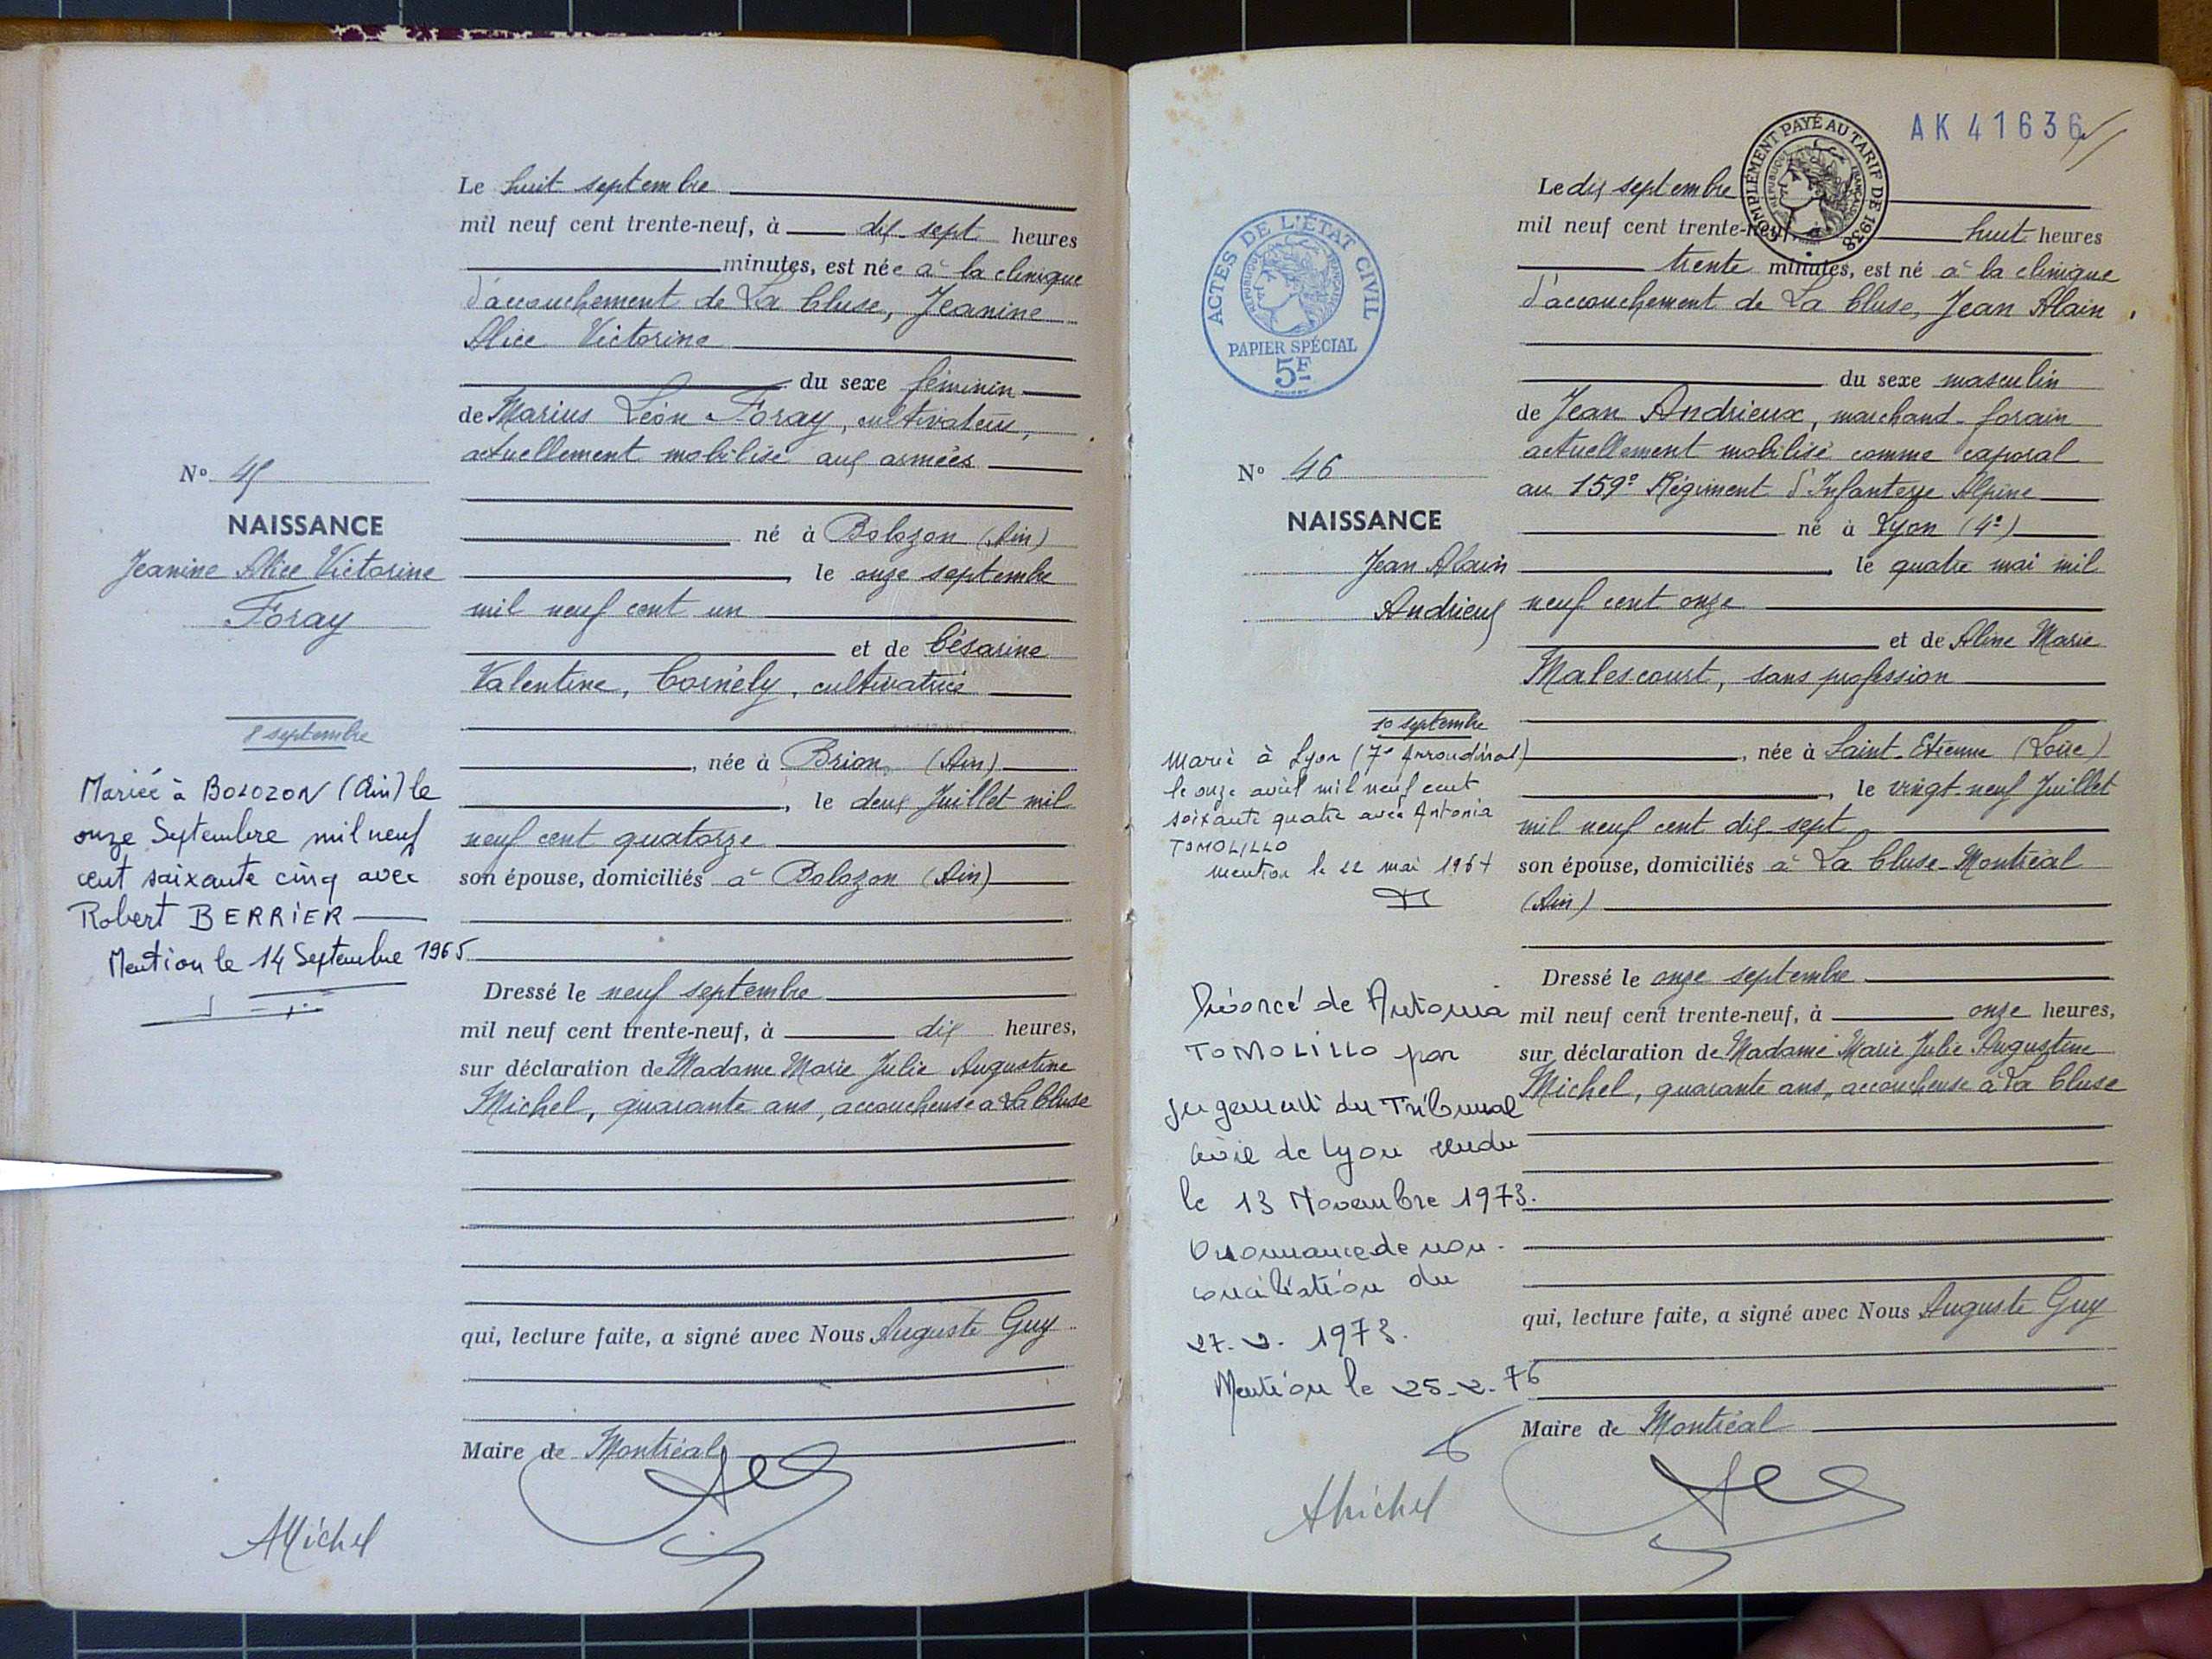 Le huit septembre
mil neuf cent trente-neuf, à dix-sept heures
minutes, est née à la clinique
d'accouchement de La Cluse, Jeanine
Alice Victorine
du sexe féminin
de Marius Léon Foray, cultivateur,
actuellement mobilisé aux armées
né à Bolozon (Ain)
le onze septembre
mil neuf cent un
et de Césarine
Valentine, Cornély, cultivatrice
, née à Brion (Ain)
, le deux Juillet mil
neuf cent quatorze
son épouse, domiciliés à Bolozon (Ain)
Dressé le neuf septembre
mil neuf cent trente-neuf, à dix heures,
sur déclaration de Madame Marie Julie Augustine
Michel, quarante ans, accoucheuse à La Cluse
qui, lecture faite, a signé avec Nous Auguste Guy
Maire de Montréal
N° 45
NAISSANCE
Jeanine Alice Victorine
Foray
8 septembre
Mariée à BOLOZON (Ain) le
onze Septembre mil neuf
cent soixante cinq avec
Robert BERRIER
Mention le 14 Septembre 1965
AMichel
AK 41636
COMPLÉMENT PAYÉ AU TARIF DE 1938
RÉPUBLIQUE FRANÇAISE
Le dix septembre
mil neuf cent trente-neuf, à huit heures
trente minutes, est né à la clinique
d'accouchement de La Cluse, Jean Alain
du sexe masculin
de Jean Andrieux, marchand-forain
actuellement mobilisé comme caporal
au 159e Régiment d'Infanterie Alpine
né à Lyon (4e)
, le quatre mai mil
neuf cent onze
et de Aline Marie
Malescourt, sans profession
, née à Saint-Etienne (Loire)
, le vingt-neuf Juillet
mil neuf cent dix-sept
son épouse, domiciliés à La Cluse-Montréal
(Ain)
Dressé le onze septembre
mil neuf cent trente-neuf, à onze heures,
sur déclaration de Madame Marie Julie Augustine
Michel, quarante ans, accoucheuse à La Cluse
qui, lecture faite, a signé avec Nous Auguste Guy
Maire de Montréal
ACTES DE L'ÉTAT CIVIL
RÉPUBLIQUE FRANÇAISE
PAPIER SPÉCIAL
5F
N° 46
NAISSANCE
Jean Alain
Andrieux
10 septembre
Marié à Lyon (7e Arrondissmt)
le onze avril mil neuf cent
soixante quatre avec Antonia
TOMOLILLO
Mention le 22 mai 1964
Divorcé de Antonia
TOMOLILLO par
jugement du Tribunal
Civil de Lyon rendu
le 13 Novembre 1973.
Ordonnance de non-
conciliation du
27.2.1973.
Mention le 25-2-76
AMichel